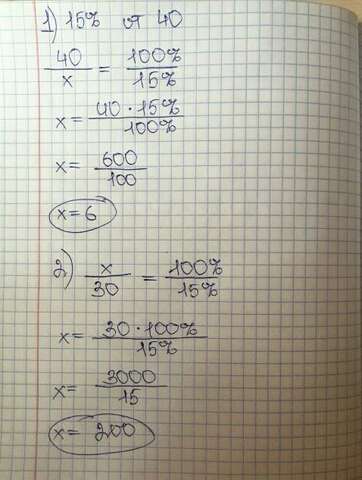 1) 15% от 40
40/x = 100%/15%
x = 40 · 15%/100%
x = 600/100
x = 6
2) x/30 = 100%/15%
x = 30 · 100%/15%
x = 3000/15
x = 200